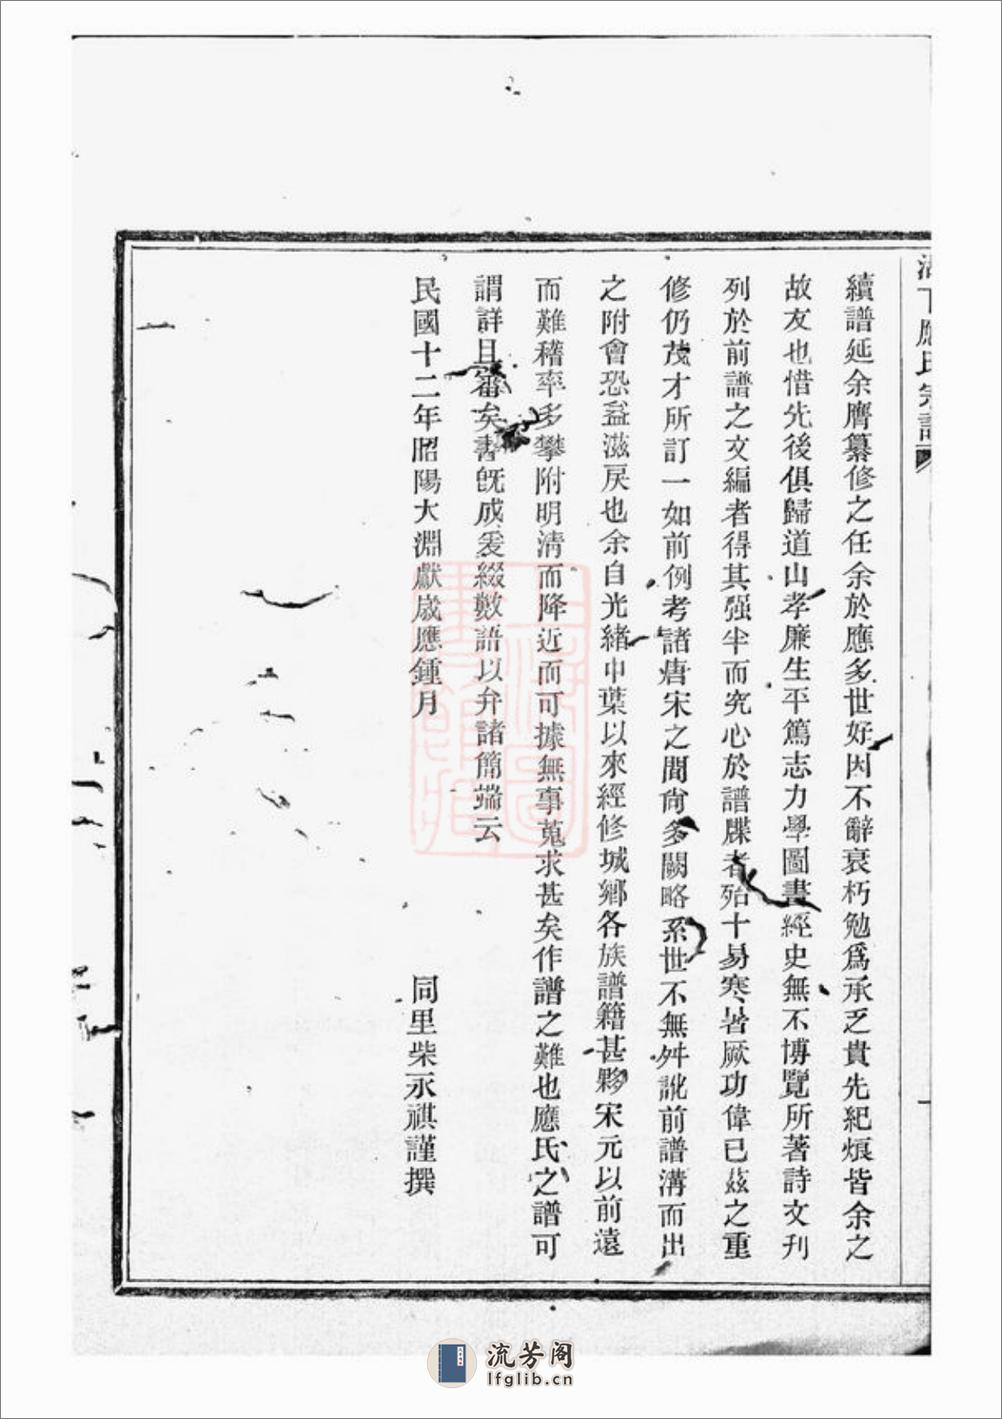 下應氏宗譜
續譜延余膺纂修之任余於應多世好因不辭衰朽勉爲承乏貴先紀烺皆余之
故友也惜先後俱歸道山孝廉生平篤志力學圖書經史無不博覽所著詩文刊
列於前譜之文編者得其强半而究心於譜牒者殆十易寒暑厥功偉已茲之重
修仍茂才所訂一如前例考諸唐宋之間尙多闕略系世不無舛訛前譜溝而出
之附會恐益滋戾也余自光緒中葉以來經修城鄉各族譜籍甚夥宋元以前遠
而難稽率多攀附明清而降近而可據無事蒐求甚矣作譜之難也應氏之譜可
謂詳且審矣書旣成爰綴數語以弁諸簡端云
民國十二年昭陽大淵獻歲應鍾月
同里柴永祺謹撰
流芳阁
lfglib.cn